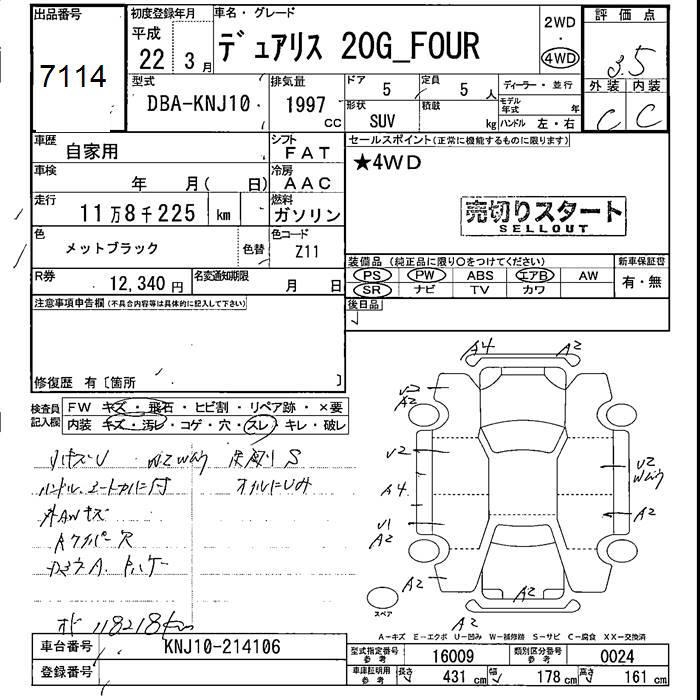 出品番号
7114
初度登録年月
平成
22 3月
車名・グレード
デュアリス 20G_FOUR
2WD
4WD
評価点
3.5
外装 内装
C C
型式
DBA-KNJ10
排気量
1997
CC
ドア
5
定員
5 人
ディーラー・並行
形状
SUV
積載
kg
モデル年式 年
ハンドル 左・右
車歴
自家用
シフト
FAT
車検
年 月( 日)
冷房
AAC
走行
11万8千225 km
燃料
ガソリン
色
メットブラック
色替
色コード
Z11
R券
12,340 円
名変通知期限
月 日
セールスポイント(正常に機能するものに限ります)
★4WD
売切りスタート
SELLOUT
装備品(純正品に限り〇をつけてください)
新車保証書
PS PW ABS エアB AW
SR ナビ TV カワ
有・無
後日品
注意事項申告欄(不具合内容等は具体的に記入して下さい)
修復歴 有〔箇所 〕
検査員
記入欄
FW キズ・飛石・ヒビ割・リペア跡・×要
内装 キズ・汚レ・コゲ・穴・スレ・キレ・破レ
オド 118218km
A4 A2
A2
V2
A4
V1
A2
A2
A2
A2
A2
スペア
A-キズ E-エクボ U-凹み W-補修跡 S-サビ C-腐食 XX-交換済
車台番号
KNJ10-214106
登録番号
型式指定番号
参考
16009
類別区分番号
参考
0024
車庫証明用
参考
長さ 431 cm 幅 178 cm 高さ 161 cm